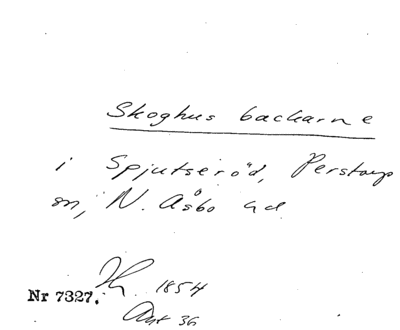 Skoghus backarne
i Spjutseröd, Perstorp
sn, N. Åsbo hd
1854
Nr 7327.
Akt 36